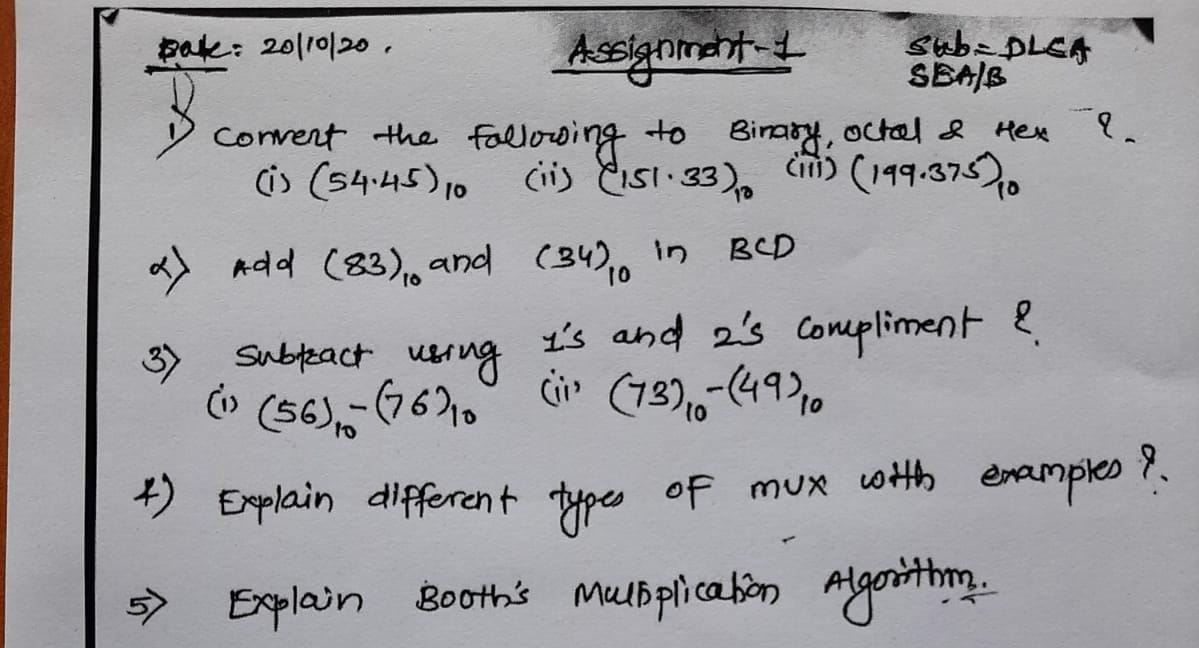 Date: 20/10/20. Assignment-1 Sub = DLCA
SEA/B
1) Convert the following to Binary, octal & Hex ?.
(i) (54.45)10 (ii) (151.33)10 (iii) (199.375)10
2) Add (83)10 and (34)10 in BCD
3) Subtract using 1's and 2's Compliment ?
(i) (56)10-(76)10 (ii) (73)10-(49)10
4) Explain different types of mux with examples ?.
5) Explain Booth's Multiplication Algorithm.